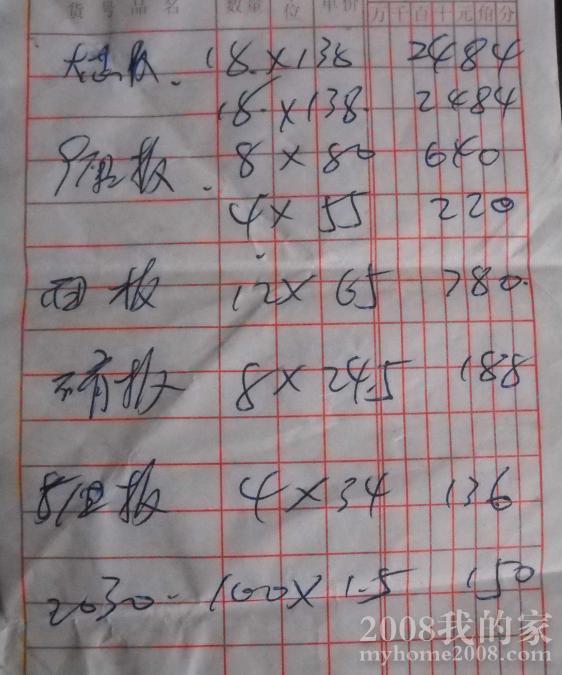 货号品名 数量 单位 单价 万千百十元佰分
大芯板. 18×138 2484
18×138. 2484
板. 8×80 640
4×55 220
板 12×65 780.
板 8×24.5 188
板 4×34 136
2030. 100×1.5 150
2008我的家
myhome2008.com